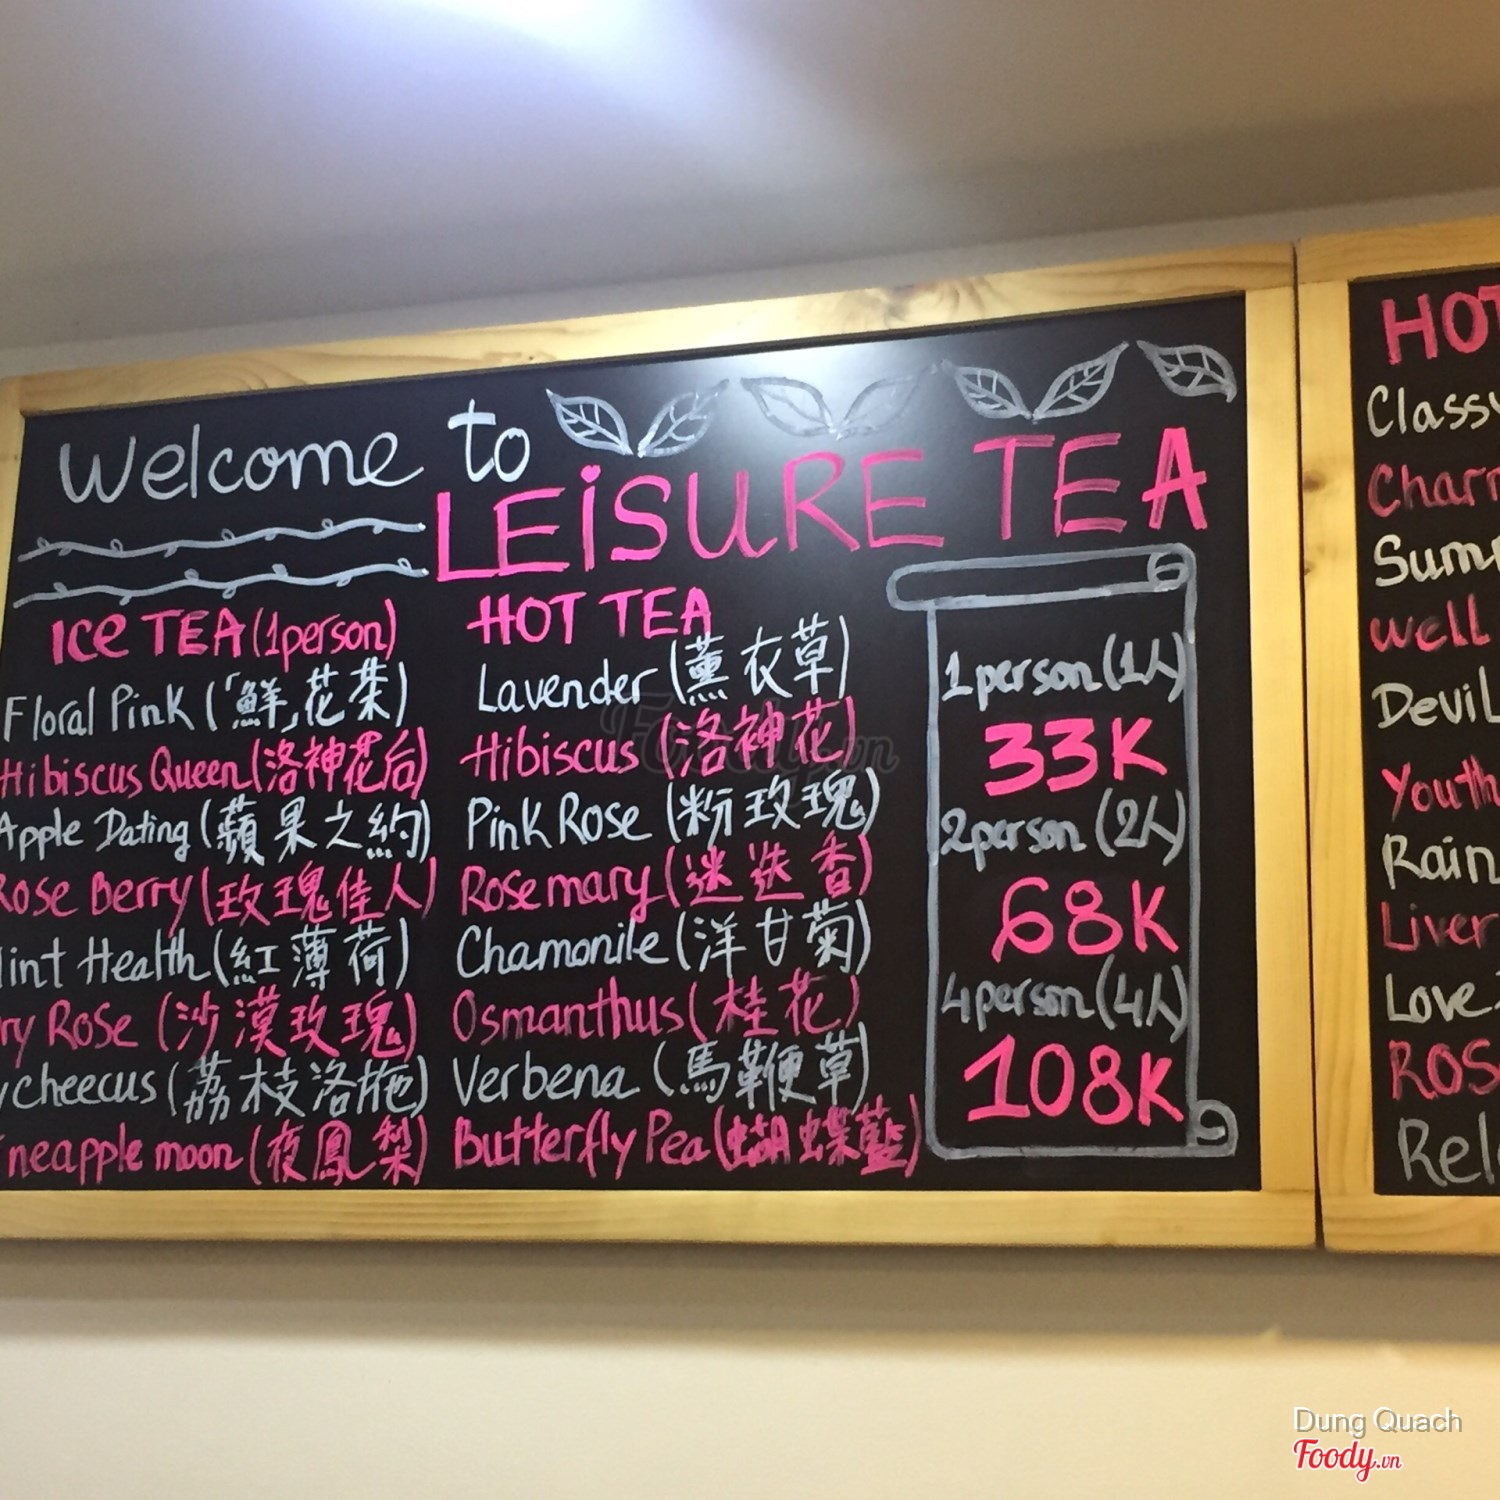 Welcome to
LEiSURE TEA
ICe TEA (1person)
Floral Pink (「鮮」花茶)
Hibiscus Queen (洛神花后)
Apple Dating (蘋果之約)
Rose Berry (玫瑰佳人)
Mint Health (紅薄荷)
ry Rose (沙漠玫瑰)
ycheecus (荔枝洛施)
ineapple moon (夜鳳梨)
HOT TEA
Lavender (薰衣草)
Hibiscus (洛神花)
Pink Rose (粉玫瑰)
Rosemary (迷迭香)
Chamonile (洋甘菊)
Osmanthus (桂花)
Verbena (馬鞭草)
Butterfly Pea (蝴蝶藍)
1person (1人)
33K
2person (2人)
68K
4person (4人)
108K
HOT
Classy
Charm
Summ
Well
Devil
Youth
Rain
Liver
Love
ROS
Rela
Foody.vn
Dung Quach
Foody.vn